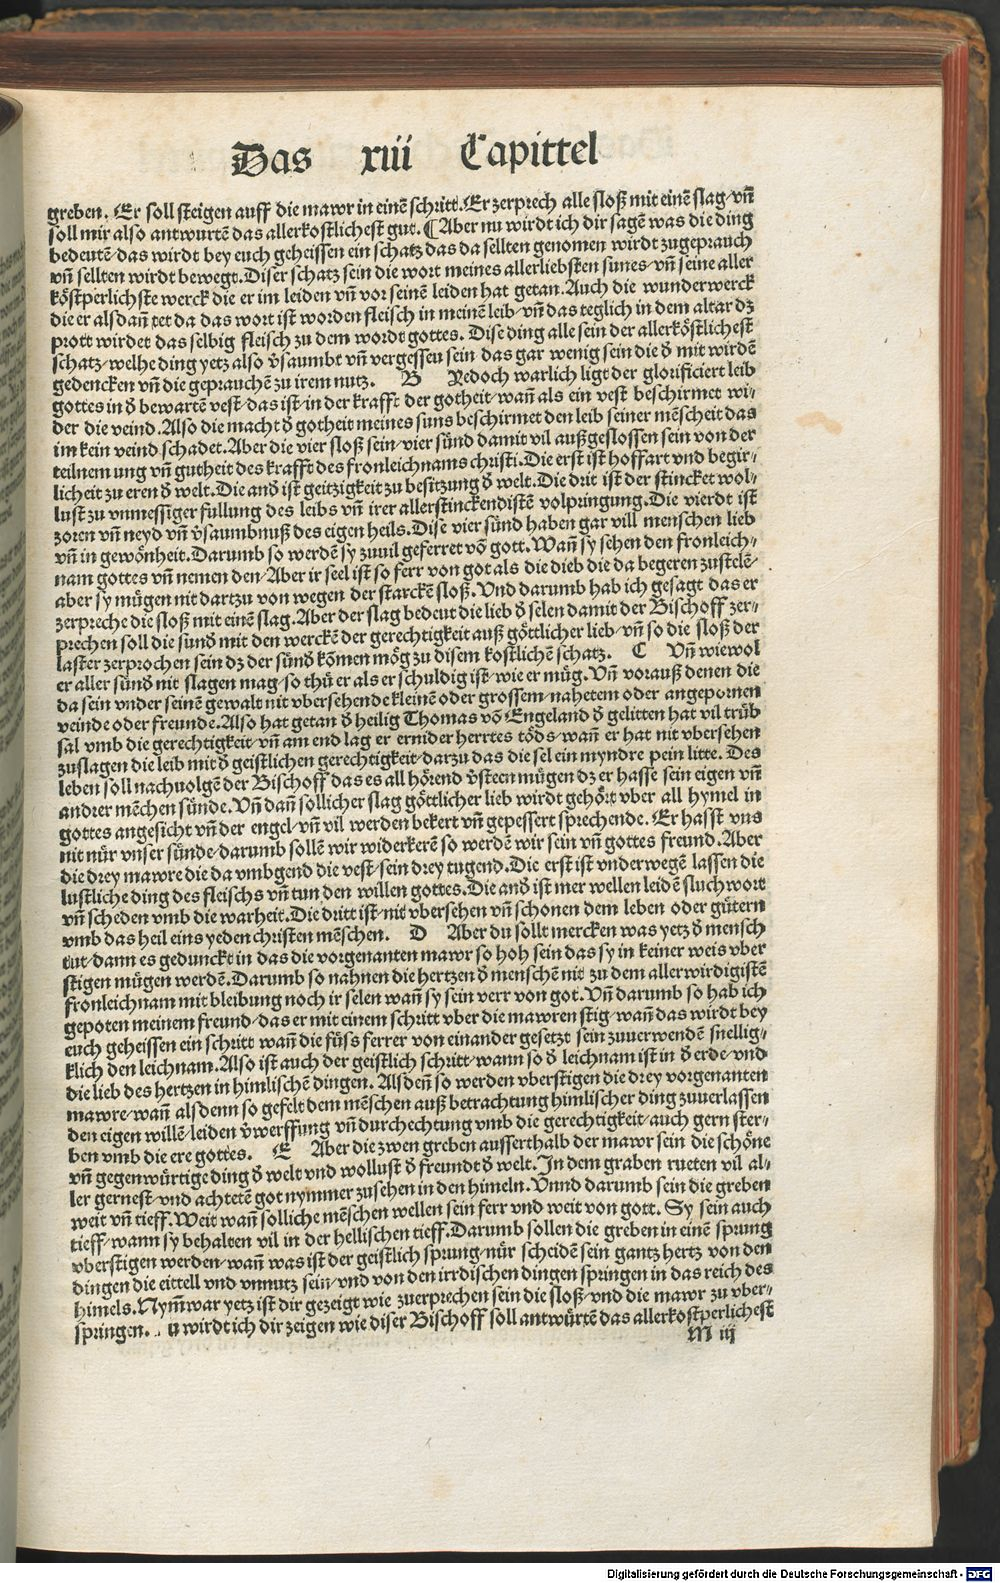 Das xiii Capittel
greben. Er soll steigen auff die mawr in einē schritt. Er zerprech alle sloß mit einē slag/vn̄
soll mir also antwurtē das allerkostlichest gut. ¶ Aber nu wirdt ich dir sagē was die ding
bedeutē/das wirdt bey euch geheissen ein schatz das da sellten genomen wirdt zugeprauch
vn̄ sellten wirdt bewegt. Diser schatz sein die wort meines allerliebsten sunes/vn̄ seine aller
köstperlichste werck die er im leiden vn̄ vor seinē leiden hat getan. Auch die wunderwerck
die er alsdan̄ tet da das wort ist worden fleisch in meinē leib/vn̄ das teglich in dem altar dz
prott wirdet das selbig fleisch zu dem wordt gottes. Dise ding alle sein der allerköstlichest
schatz/welhe ding yetz also v̄saumbt vn̄ vergessen sein das gar wenig sein die d̄ mit wirdē
gedencken vn̄ die geprauchē zu irem nutz. B Yedoch warlich ligt der glorificiert leib
gottes in d̄ bewartē vest/das ist/in der krafft der gotheit/wan̄ als ein vest beschirmet wi/
der die veind. Also die macht d̄ gotheit meines suns beschirmet den leib seiner mēscheit das
im kein veind schadet. Aber die vier sloß sein/vier sünd damit vil außgeslossen sein von der
teilnemung vn̄ gutheit des krafft des fronleichnams christi. Die erst ist hoffart vnd begir/
licheit zu eren d̄ welt. Die and̄ ist geitzigkeit zu besitzung d̄ welt. Die drit ist der stincket wol/
lust zu vnmessiger fullung des leibs vn̄ irer allerstinckendistē volpringung. Die vierdt ist
zoren vn̄ neyd vn̄ v̄saumbnuß des eigen heils. Dise vier sünd haben gar vill menschen lieb
vn̄ in gewönheit. Darumb so werdē sy zuuil geferret vō gott. Wan̄ sy sehen den fronleich/
nam gottes vn̄ nemen den/Aber ir seel ist so ferr von got als die dieb die da begeren zustelē/
aber sy mügen nit dartzu von wegen der starckē sloß. Vnd darumb hab ich gesagt das er
zerpreche die sloß mit einē slag. Aber der slag bedeut die lieb d̄ selen damit der Bischoff zer/
prechen soll die sünd mit den werckē der gerechtigkeit auß göttlicher lieb/vn̄ so die sloß der
laster zerprochen sein dz der sünd̄ kōmen mög zu disem kostlichē schatz. C Vn̄ wiewol
er aller sünd̄ nit slagen mag/so thü er als er schuldig ist/wie er müg. Vn̄ vorauß denen die
da sein vnder seinē gewalt nit vbersehende kleinē oder grossem/nahetem oder angepornen
veinde oder freunde. Also hat getan d̄ heilig Thomas vō Engeland d̄ gelitten hat vil trüb
sal vmb die gerechtigkeit/vn̄ am end lag er ernider herrtes töds/wan̄ er hat nit vbersehen
zuslagen die leib mit d̄ geistlichen gerechtigkeit/darzu das die sel ein myndre pein litte. Des
leben soll nachuolgē der Bischoff das es all hörend v̄steen mügen dz er hasse sein eigen vn̄
andrer mēchen sünde. Vn̄ dan̄ sollicher slag göttlicher lieb wirdt gehört vber all hymel in
gottes angesicht vn̄ der engel/vn̄ vil werden bekert vn̄ gepessert sprechende. Er hasst vns
nit nür vnser sünde/darumb sollē wir widerkerē so werdē wir sein vn̄ gottes freund. Aber
die drey mawre die da vmbgend die vest/sein drey tugend. Die erst ist vnderwegē lassen die
lustliche ding des fleischs vn̄ tun den willen gottes. Die and̄ ist mer wellen leidē fluchwort
vn̄ scheden vmb die warheit. Die dritt ist/nit vbersehen vn̄ schonen dem leben oder gütern
vmb das heil eins yeden christen mēschen. D Aber du sollt mercken was yetz d̄ mensch
tut/dann es gedunckt in das die vorgenanten mawr so hoh sein das sy in keiner weis vber
stigen mügen werdē. Darumb so nahnen die hertzen d̄ menschē nit zu dem allerwirdigistē
fronleichnam mit bleibung noch ir selen wan̄ sy sein verr von got. Vn̄ darumb so hab ich
gepoten meinem freund/das er mit einem schritt vber die mawren stig/wan̄ das wirdt bey
euch geheissen ein schritt wan̄ die füss ferrer von einander gesetzt sein zuuerwendē snellig/
klich den leichnam. Also ist auch der geistlich schritt/wann so d̄ leichnam ist in d̄ erde/vnd
die lieb des hertzen in himlischē dingen. Alsden̄ so werden vberstigen die drey vorgenanten
mawre/wan̄ alsdenn so gefelt dem mēschen auß betrachtung himlischer ding zuuerlassen
den eigen willē/leiden v̄werffung vn̄ durchechtung vmb die gerechtigkeit/auch gern ster/
ben vmb die ere gottes. E Aber die zwen greben ausserthalb der mawr sein die schöne
vn̄ gegenwürtige ding d̄ welt vnd wollust d̄ freundt d̄ welt. In dem graben rueten vil al/
ler gernest/vnd achtetē got nymmer zusehen in den himeln. Vnnd darumb sein die greben
weit vn̄ tieff. Weit wan̄ solliche mēschen wellen sein ferr vnd weit von gott. Sy sein auch
tieff/wann sy behalten vil in der hellischen tieff. Darumb sollen die greben in einē sprung
vberstigen werden/wan̄ was ist der geistlich sprung/nür scheidē sein gantz hertz von den
dingen die eittell vnd vnnutz sein/vnd von den irrdischen dingen springen in das reich des
himels. Nym̄war yetz ist dir gezeigt wie zuerprechen sein die sloß/vnd die mawr zu vber/
springen. u wirdt ich dir zeigen wie diser Bischoff soll antwürtē das allerkostperlichest
M iij
Digitalisierung gefördert durch die Deutsche Forschungsgemeinschaft - DFG